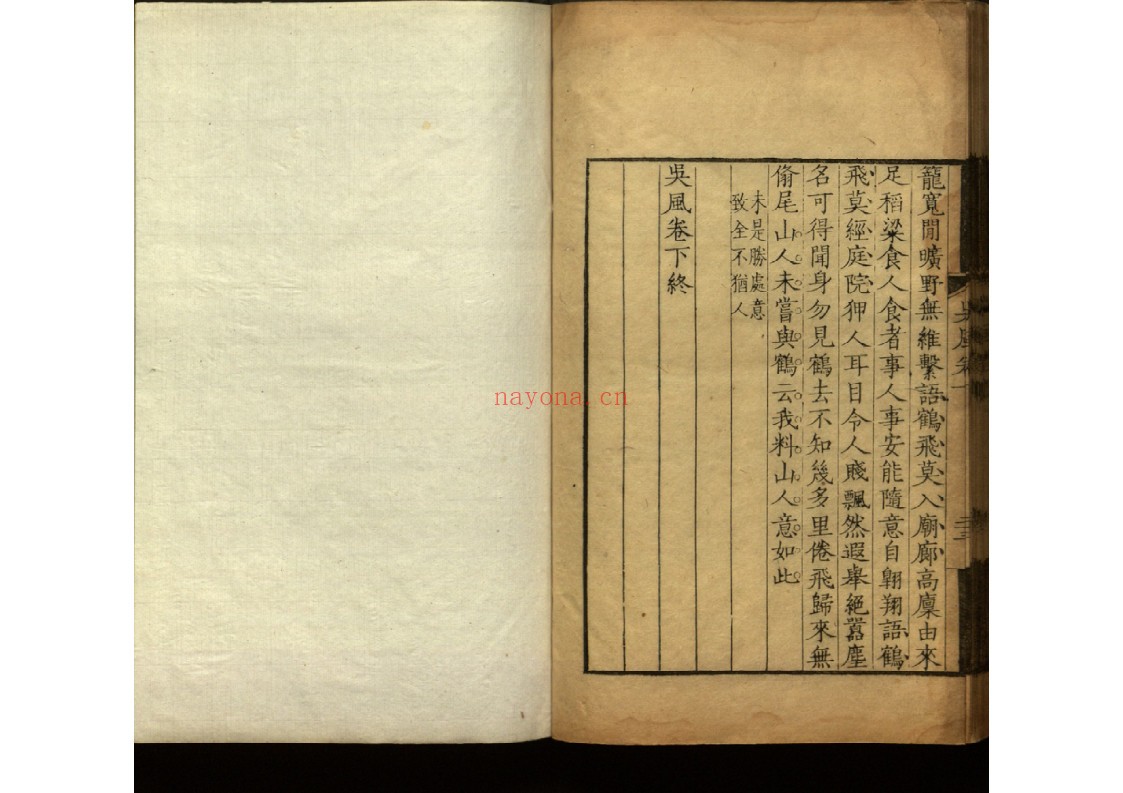 籠寬閒曠野無維繫語鶴飛莫入廟廊高廩由來
足稻粱食人食者事人事安能隨意自翺翔語鶴
飛莫經庭院狎人耳目令人賤飄然遐舉絕囂塵
名可得聞身勿見鶴去不知幾多里倦飛歸來無
脩尾山人未嘗與鶴云我料山人意如此
未是勝處意
致全不猶人
吳風卷下終
nayona.cn